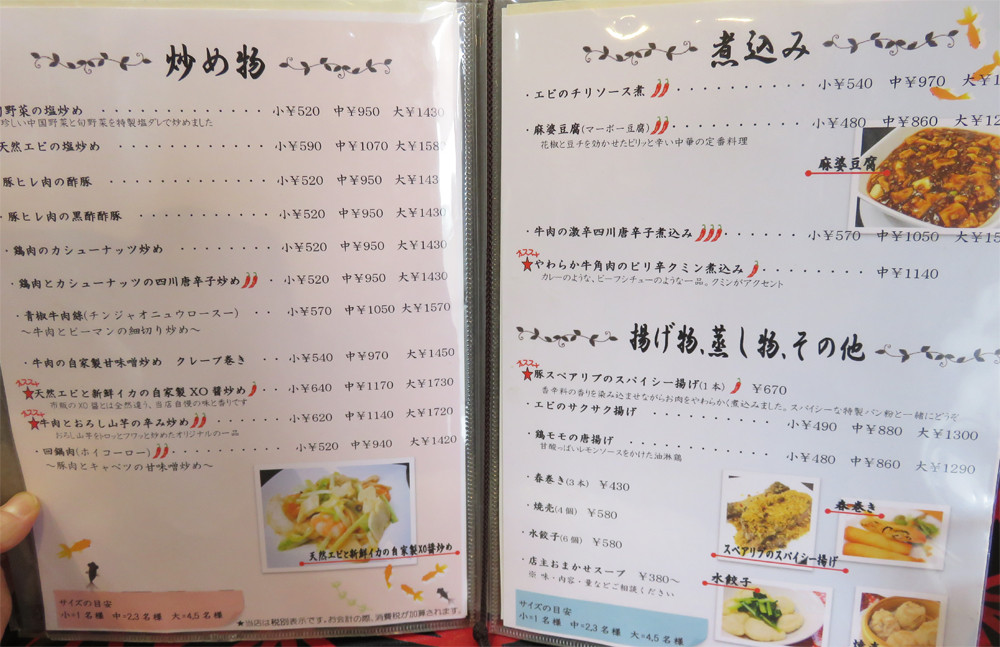 炒め物
旬野菜の塩炒め ・・・・・・・・・・・ 小¥520 中¥950 大¥1430
珍しい中国野菜と旬野菜を特製塩ダレで炒めました
天然エビの塩炒め ・・・・・・・・・・ 小¥590 中¥1070 大¥158
豚ヒレ肉の酢豚 ・・・・・・・・・・・ 小¥520 中¥950 大¥143
・豚ヒレ肉の黒酢酢豚 ・・・・・・・・・ 小¥520 中¥950 大¥1430
・鶏肉のカシューナッツ炒め ・・・・・・ 小¥520 中¥950 大¥1430
・鶏肉とカシューナッツの四川唐辛子炒め ・・ 小¥520 中¥950 大¥1430
・青椒牛肉絲(チンジャオニュウロースー) ・・ 小¥570 中¥1050 大¥1570
～牛肉とピーマンの細切り炒め～
・牛肉の自家製甘味噌炒め クレープ巻き ・・ 小¥540 中¥970 大¥1450
オススメ
★天然エビと新鮮イカの自家製XO醬炒め ・・ 小¥640 中¥1170 大¥1730
市販のXO醬とは全然違う、当店自慢の味と香りです
オススメ
★牛肉とおろし山芋の辛み炒め ・・・・・ 小¥620 中¥1140 大¥1720
おろし山芋をトロッとフワッと炒めたオリジナルの一品
・回鍋肉(ホイコーロー) ・・・・・・・・ 小¥520 中¥940 大¥1420
～豚肉とキャベツの甘味噌炒め～
天然エビと新鮮イカの自家製XO醬炒め
サイズの目安
小=1名様 中=2,3名様 大=4,5名様
★当店は税別表示です。お会計の際、消費税が加算されます。
煮込み
・エビのチリソース煮 ・・・・・・・・・ 小¥540 中¥970 大¥1
・麻婆豆腐(マーボー豆腐) ・・・・・・・ 小¥480 中¥860 大¥12
花椒と豆チを効かせたピリッと辛い中華の定番料理
麻婆豆腐
・牛肉の激辛四川唐辛子煮込み ・・・・・ 小¥570 中¥1050 大¥15
オススメ
★やわらか牛角肉のピリ辛クミン煮込み ・・・・・・・・ 中¥1140
カレーのような、ビーフシチューのような一品。クミンがアクセント
揚げ物、蒸し物、その他
オススメ
★豚スペアリブのスパイシー揚げ(1本) ¥670
香辛料の香りを染み込ませながらお肉をやわらかく煮込みました。スパイシーな特製パン粉と一緒にどうぞ
・エビのサクサク揚げ ・・・・・・・・ 小¥490 中¥880 大¥1300
・鶏モモの唐揚げ ・・・・・・・・・・ 小¥480 中¥860 大¥1290
甘酸っぱいレモンソースをかけた油淋鶏
・春巻き(3本) ¥430
・焼売(4個) ¥580
・水餃子(6個) ¥580
・店主おまかせスープ ¥380～
※ 味・内容・量などご相談ください
春巻き
スペアリブのスパイシー揚げ
水餃子
サイズの目安
小=1名様 中=2,3名様 大=4,5名様